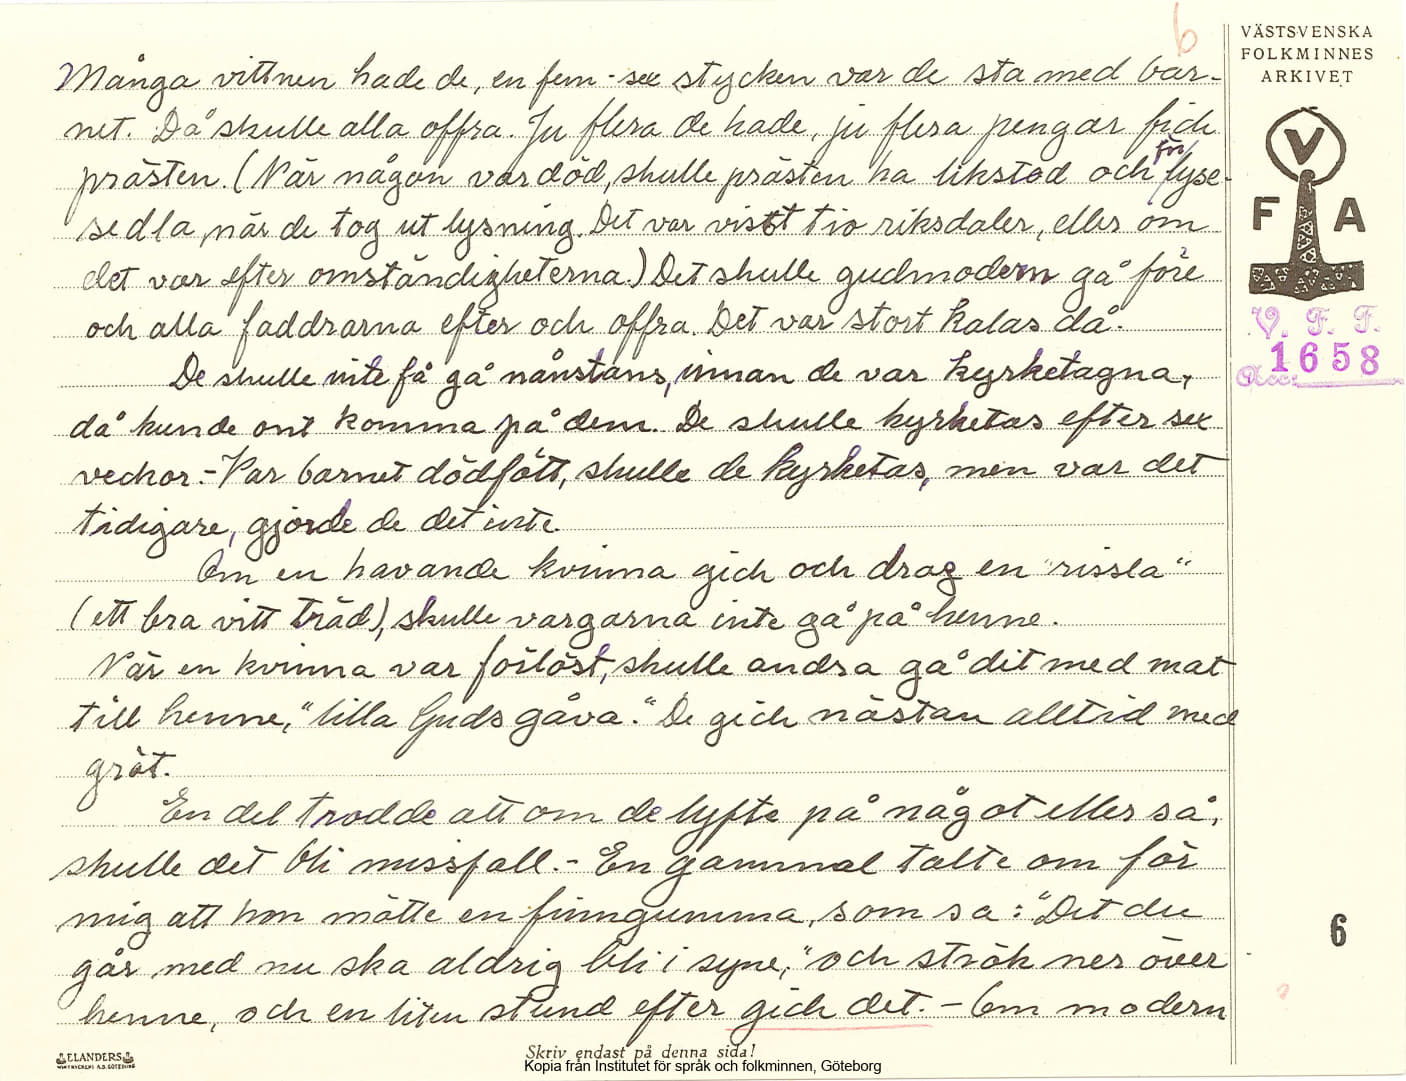 6
VÄSTSVENSKA
FOLKMINNES
ARKIVET
V
F A
V. F. F.
Acc: 1658
Många vittnen hade de, en fem-sex stycken var de sta med bar-
net. Då skulle alla offra. Ju flera de hade, ju flera pengar fick
prästen. (När någon var död, skulle prästen ha likstod och för lyse-
sedla, när de tog ut lysning. Det var visst tio riksdaler, eller om
det var efter omständigheterna.) Det skulle gudmodern gå före
och alla faddrarna efter och offra. Det var stort kalas då.
De skulle inte få gå nånstans, innan de var kyrketagna,
då kunde ont komma på dem. De skulle kyrketas efter sex
veckor.- Var barnet dödfött, skulle de kyrketas, men var det
tidigare, gjorde de det inte.
Om en havande kvinna gick och drog en "rissla"
(ett bra vitt träd), skulle vargarna inte gå på henne.
När en kvinna var förlöst, skulle andra gå dit med mat
till henne, "lilla Guds gåva." De gick nästan alltid med
gröt.
En del trodde att om de lyfte på något eller så,
skulle det bli missfall.- En gammal talte om för
mig att hon mötte en finngumma, som sa: "Det du
går med nu ska aldrig bli i syne," och strök ner över
henne, och en liten stund efter gick det. - Om modern
6
ELANDERS
BOKTRYCKERI A.B. GÖTEBORG
Skriv endast på denna sida!
Kopia från Institutet för språk och folkminnen, Göteborg